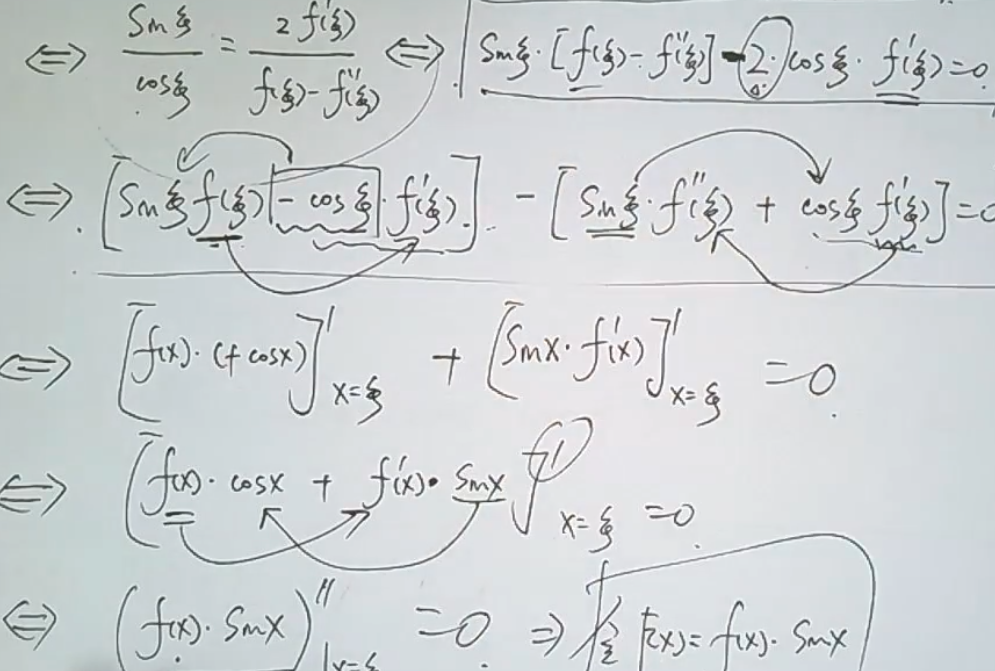 ⇔ Sinξ/cosξ = 2f'(ξ)/(f(ξ)-f''(ξ)) ⇔ Sinξ·[f(ξ)-f''(ξ)] - 2·cosξ·f'(ξ)=0
⇔ [Sinξ f(ξ) - cosξ·f'(ξ)] - [Sinξ·f''(ξ) + cosξ f'(ξ)]=0
⇔ [f(x)·(+cosx)]'x=ξ + [Sinx·f'(x)]'x=ξ =0
⇔ [f(x)·cosx + f'(x)·Sinx]'x=ξ =0
⇔ (f(x)·Sinx)''|x=ξ =0 ⇒ F(x)=f(x)·Sinx